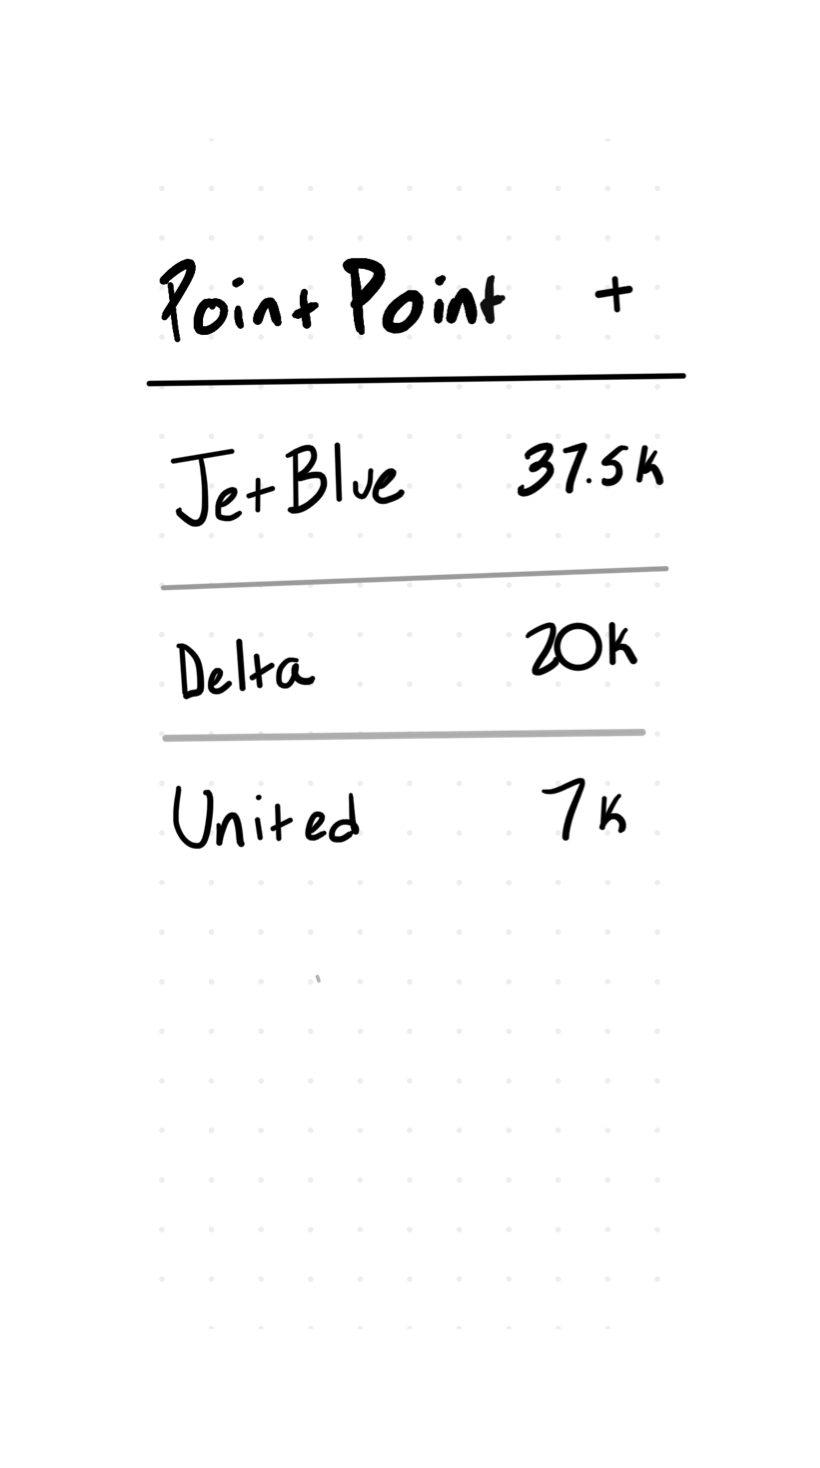 Point Point +
JetBlue 37.5K
Delta 20K
United 7K